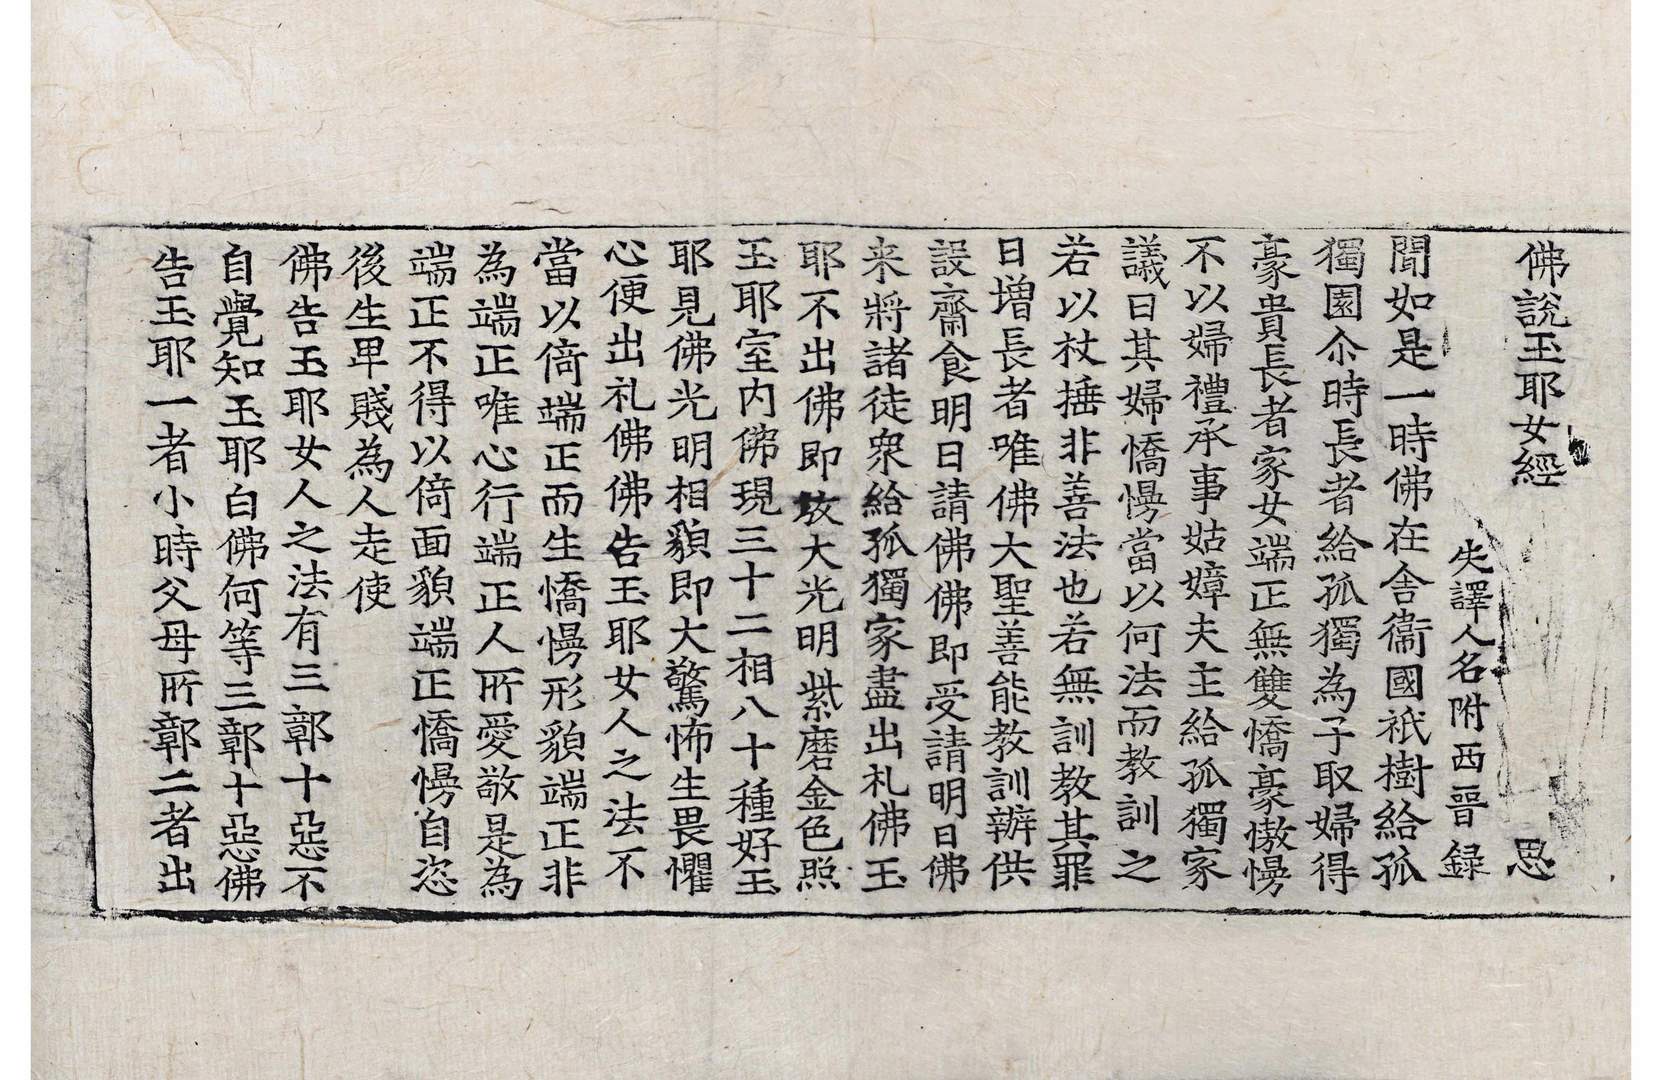 佛說玉耶女經 思
失譯人名附西晉錄
聞如是一時佛在舍衞國祇樹給孤
獨園尒時長者給孤獨為子取婦得
豪貴長者家女端正無雙憍豪慠慢
不以婦禮承事姑嫜夫主給孤獨家
議曰其婦憍慢當以何法而教訓之
若以杖捶非善法也若無訓教其罪
日增長者唯佛大聖善能教訓辦供
設齋食明日請佛佛即受請明日佛
来將諸徒衆給孤獨家盡出礼佛玉
耶不出佛即放大光明紫磨金色照
玉耶室内佛現三十二相八十種好玉
耶見佛光明相貌即大驚怖生畏懼
心便出礼佛佛告玉耶女人之法不
當以倚端正而生憍慢形貌端正非
為端正唯心行端正人所愛敬是為
端正不得以倚面貌端正憍慢自恣
後生卑賤為人走使
佛告玉耶女人之法有三鄣十惡不
自覺知玉耶白佛何等三鄣十惡佛
告玉耶一者小時父母所鄣二者出